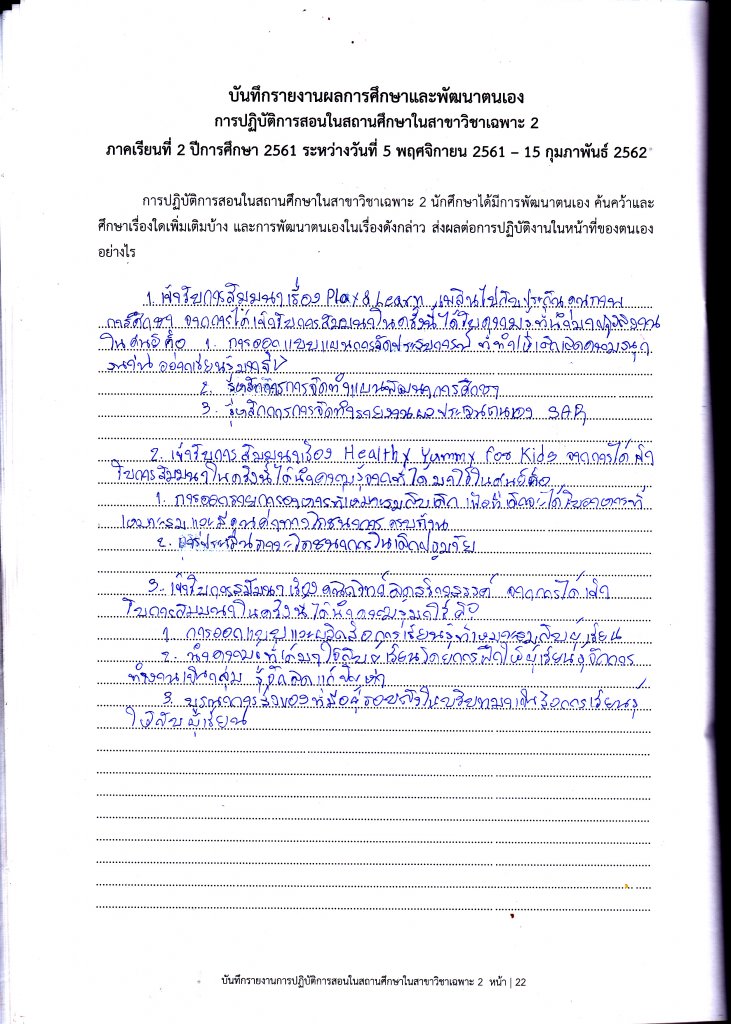 บันทึกรายงานผลการศึกษาและพัฒนาตนเอง
การปฏิบัติการสอนในสถานศึกษาในสาขาวิชาเฉพาะ 2
ภาคเรียนที่ 2 ปีการศึกษา 2561 ระหว่างวันที่ 5 พฤศจิกายน 2561 – 15 กุมภาพันธ์ 2562
การปฏิบัติการสอนในสถานศึกษาในสาขาวิชาเฉพาะ 2 นักศึกษาได้มีการพัฒนาตนเอง ค้นคว้าและ
ศึกษาเรื่องใดเพิ่มเติมบ้าง และการพัฒนาตนเองในเรื่องดังกล่าว ส่งผลต่อการปฏิบัติงานในหน้าที่ของตนเอง
อย่างไร
1. เข้ารับการสัมมนาเรื่อง Play & Learn เพลินไปกับประกันคุณภาพ
การศึกษา จากการได้เข้ารับการสัมมนาในครั้งนี้ได้รับความรู้ที่นำมา
ในศูนย์คือ 1. การออกแบบแผนการจัดประสบการณ์ ที่ทำให้เด็กเกิดความสนุก
2. รู้หลักการการจัดทำแผนพัฒนาการศึกษา
3. รู้หลักการการจัดทำรายงานผลประเมินตนเอง SAR
2. เข้ารับการสัมมนาเรื่อง Healthy Yummy for Kids จากการได้เข้า
รับการสัมมนาในครั้งนี้ได้นำความรู้จากที่ได้มาใช้ในศูนย์คือ
1. การออกรายการอาหารที่เหมาะสมกับเด็ก เพื่อที่เด็กจะได้รับอาหารที่
เหมาะสมและมีคุณค่าทางโภชนาการครบถ้วน
2. การประเมินภาวะโภชนาการในเด็กปฐมวัย
3. เข้ารับการสัมมนาเรื่อง คณิตวิทย์ จากการได้เข้า
รับการสัมมนาในครั้งนี้ได้นำความรู้มาใช้ คือ
1. การออกแบบและผลิตสื่อการเรียนรู้ที่เหมาะสมกับผู้เรียน
2. นำความรู้ที่ได้มาใช้กับผู้เรียนโดยการฝึกให้ผู้เรียนรู้จักการ
ทำงานเป็นกลุ่ม รู้จักคิดแก้ปัญหา
3. บูรณาการสิ่งของที่มีอยู่รอบตัวในบริบทมาเป็นสื่อการเรียนรู้
ให้กับผู้เรียน
บันทึกรายงานการปฏิบัติการสอนในสถานศึกษาในสาขาวิชาเฉพาะ 2 หน้า | 22